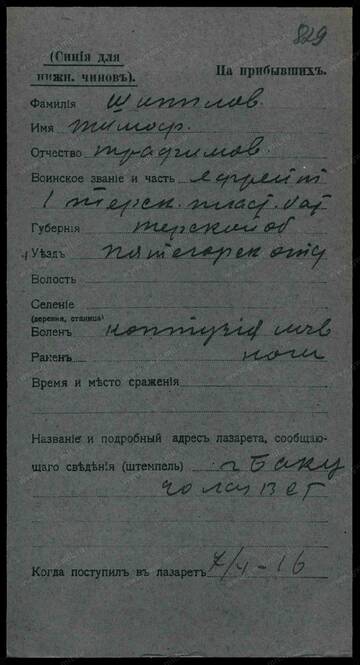 829
(Синія для
нижн. чиновъ).
На прибывшихъ.
Фамилія Шиптлов.
Имя тимоф.
Отчество трафимов.
Воинское званіе и часть ефрейт
1 терск. пласт. бат
Губернія терской об
Уѣздъ пятегорск отд
Волость
Селеніе
(деревня, станица)
Боленъ контузія лѣв
Раненъ ноги
Время и мѣсто сраженія
Названіе и подробный адресъ лазарета, сообщаю-
щаго свѣдѣнія (штемпель) г Баку
Когда поступилъ въ лазаретъ 7/4-16